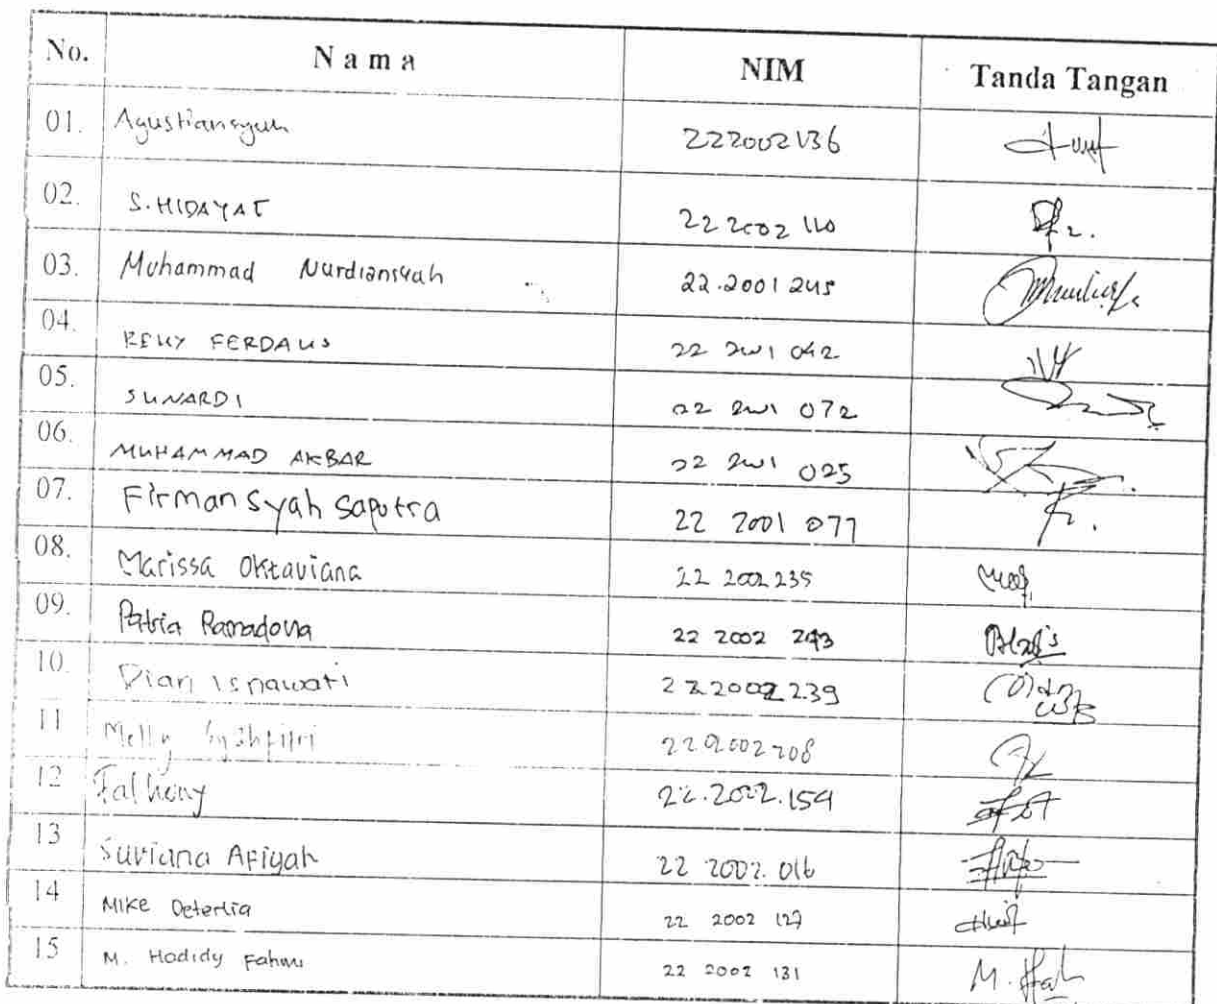 No. Nama NIM Tanda Tangan
01. Agustiansyah 222002136
02. S. HIDAYAT 22 2002 110
03. Muhammad Nurdiansyah 22.2001 245
04. FERDAUS 22 2001 042
05. SUNARDI 22 2001 072
06. MUHAMMAD AKBAR 22 2001 025
07. Firmansyah Saputra 22 2001 077
08. Marissa Oktaviana 22 2002 235
09. Patria Ramadona 22 2002 243
10. Dian Isnawati 22 2002 239
11 Melly Syahfitri 22 2002 208
12 Falhony 22.2002.159
13 Suviana Afiyah 22 2002.016
14 Mike Deterlia 22 2002 127
15 M. Hodidy Fahmi 22 2002 131 M.